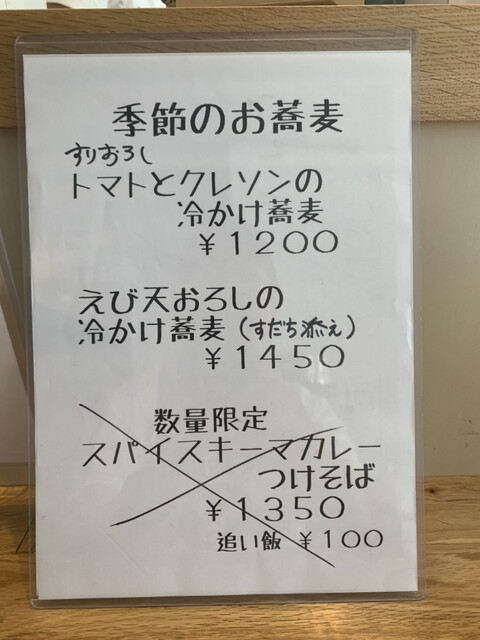 季節のお蕎麦
すりおろし
トマトとクレソンの
冷かけ蕎麦
￥1200
えび天おろしの
冷かけ蕎麦(すだち添え)
￥1450
数量限定
スパイスキーマカレー
つけそば
￥1350
追い飯 ￥100